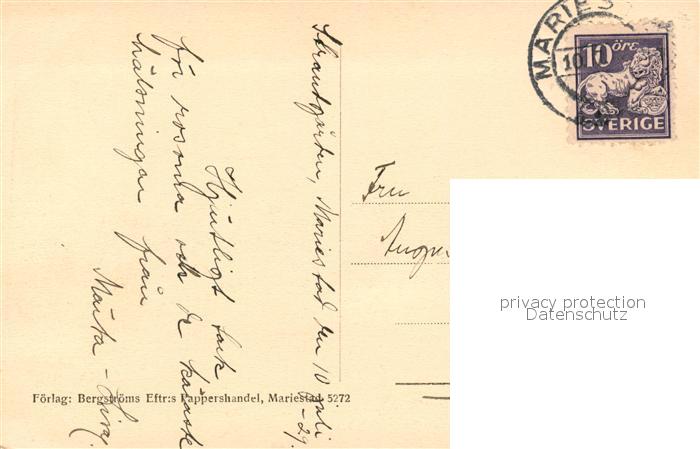 Strandgården, Mariestad den 10 juli
-29.
Hjärtligt tack
för rosorna och de käraste
hälsningar från
Märta -
Fru
Förlag: Bergströms Eftr:s Pappershandel, Mariestad 5272
MARIES
10
10 ÖRE
SVERIGE
privacy protection
Datenschutz